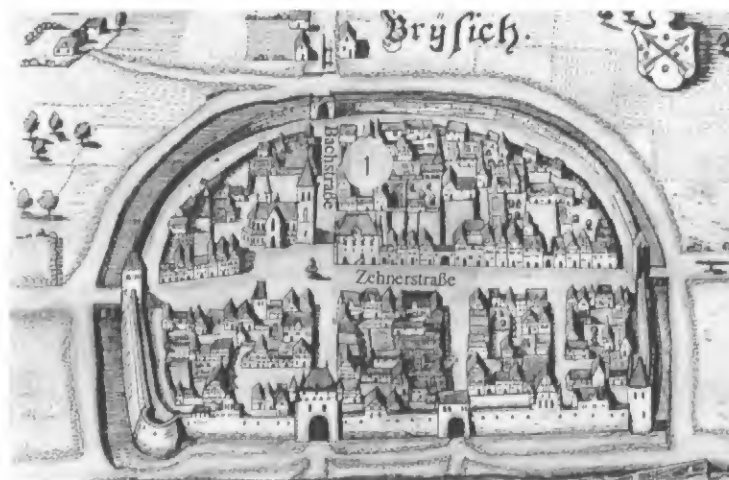 Brÿsich.
Bachstraße
1
Zehnerstraße